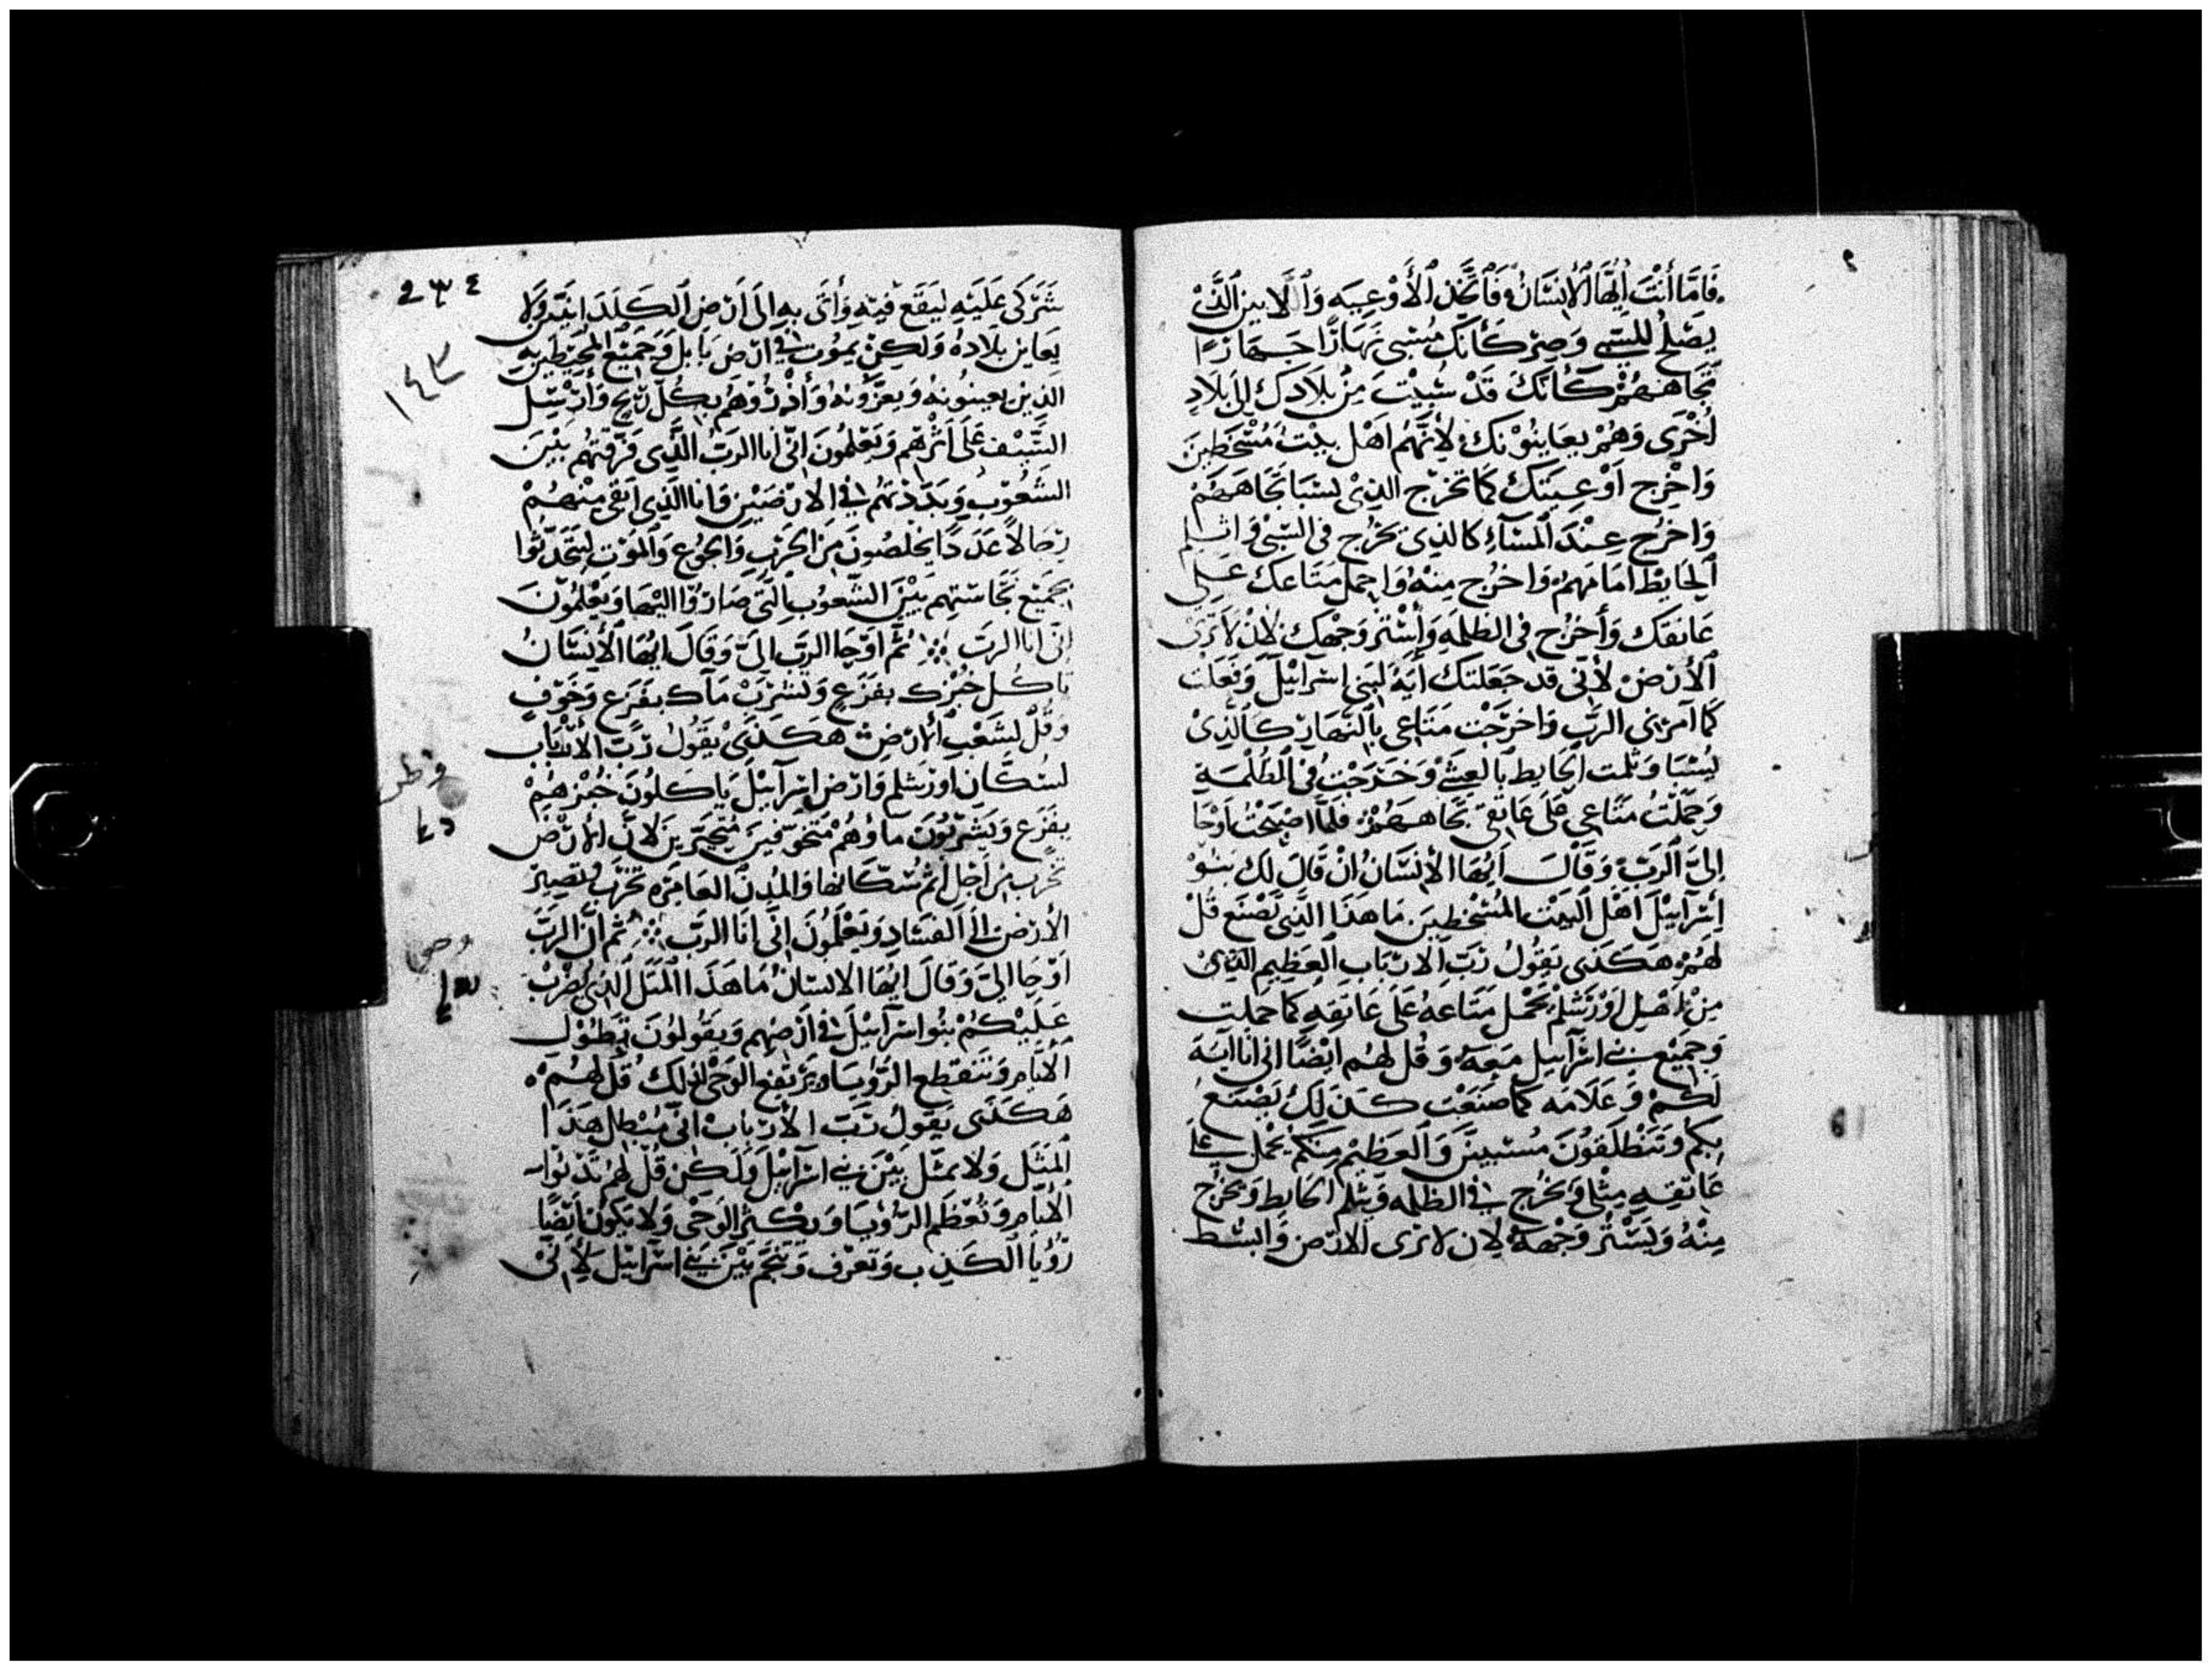 فَامَّا أَنْتَ اَيُّهَا ٱلْاِنْسَانُ فَٱتَّخِذ ٱلْأَوْعِيَه وَٱللابين الَّذِيْ
يَصْلحُ للسَّبِي وَصِرْ كَأَنَكَ مُسْبى نَهَارًا جِهَارًا
تِجَاهَهُمْ كَأَنَكَ قَدْ سُبِيْتَ مِنْ بِلَادِكَ اِلَى بِلَادِ
اُخْرَى وَهُمْ يعَايِنُوْنَكَ لِأَنَّهُم اَهْل بَيْتٌ مُسْخطِيْنَ
وَاخْرِج اَوْعِيَتَكَ كَمَا تخرُج الذِيْ يسْبَا تِجَاهَهُمْ
وَاخرُج عِنْدَ اَلْمَسَآءِ كَالذِى يخرُج فى السَّبْى وَاثلم
اَلْحَايِط امَامَهُم وَاخرُج مِنْهُ وَاحمل مَتَاعك عَلى
عَاتِقك وَأخرُج فى الظلمَه وَاسْتر وَجْهك لِأن لَا تَرَى
اَلْأرْضَ لِأنّى قَد جَعَلتك أيَهً لِبَنِى اسْرَايِيْلَ وَفَعَلت
كَمَا آمرَنى الرَّب وَاخرَجْت مَتَاعِى بِٱلنَّهَارِ كَٱلَّذِيْ
يُسْبَا وَثلمت ٱلحَايط بٱلعِشَيِّ وَخَرَجْتُ فى ٱلْظُلْمَةِ
وَحَملْتُ مَتَاعِى عَلى عَاتِقى تِجَاهَهُمْ فلَمَّا اصْبَحْتُ اَوْحَا
اِلىَّ اَلرَبّ وَقَالَ اَيُّهَا الأِنْسَانُ انْ قَالَ لك بَنُوْ
اِسْرَآيِيْلَ اَهْل اَلبَيْت المُسْخطِيْنَ مَا هَذَا الَّذِيْ تَصْنَع قُلْ
لَهُمْ هَكَذَى يَقُولُ رَبّ اَلأرْبَابِ اَلْعَظِيم الذِيْ
مِنْ اهْل اَوْرَشلِمْ يَحْمل مَتَاعهُ عَلَى عَاتِقِهِ كَمَا حَملت
وَجَمِيْع بَني اسْرَآييل مَعَهُ وَقُل لهُم ايْضًا انى انَا آيَة
لَكُمْ وَعَلَامَه كمَا صَنَعْت كَذَلِكَ يَصْنَع
بِكم وَتَنْطَلقُونَ مُسْتبيينَ وَاَلعَظِيْم مِنكمْ يَحْمل عَلى
عَاتِقِهِ مِثْلى وَيخرُج في الظلمه وَيثلم الحَايط وَيخرُج
مِنْهُ وَيَسْتُر وَجْهَهُ لِأن لَا يَرَى الأرْض وَابْسُط
234
١٤٣
شَرَكى عَلَيْهِ ليَقَع فِيْهِ وَأتَى بهِ اِلىَ اَرْض اَلكَلدَانِيّيْن وَلا
يعَايِن بلَادهُ وَلَكِنْ يمُوت في ارْض بَابل وَجَميْع المحِيْطِيْن بِهِ
الذِيْن يعينُونهُ وَيعَزّونهُ وَأذْرُوهُم بِكُلّ رِيْح وَارْسِل
السَّيْف عَلَى اثرهم وَيَعْلمُونَ اِنّى اَنَا الرَبُّ الَّذِى فَرَّقتهُم بَيْنَ
الشَعُوْب وَبَدَّدْتهُم في الأرْضَيْن وَانَا الَّذِى اَبْقى مِنْهُمْ
رِجَالاً عَدَدًا يخْلصُونَ مِنَ الحَرْب وَالجُوْع وَالمَوْت لِيَتَحَدَّثُوا
بجَمِيْع نجَاسَتهم بَيْنَ الشّعوْب التى صَارُوا اليْهَا وَيَعْلمُوْنَ
اِنّى انَا الرَبّ ثُمَّ اَوْحَا الرَّب الىّ وَقَالَ ايُّهَا الأِنْسَانُ
تَاكُل خُبْزك بفَزَعٍ وَتشرَبْ مَآك بفَزَع وَخَوْفٍ
وَقُلْ لشَعْب اَلأرْض هَكَذَى يَقُوْل رَبّ الأرْبَاب
لسُكَّان اورَشلم وَارْض اسْرآييْلَ يَاكلُونَ خُبْزهُمْ
بفَزَع وَيَشْرَبُوْنَ مَاؤهُمْ مُتخَوّفِيْنَ مُتحَيّرِيْنَ لِأنَّ الأرْض
تخرَب مِن اَجْل اثم سُكّانهَا وَالمُدن العَامِرَه تخْرَب وَتصِيْرُ
الأرْض الىَ الفسَادِ وَتَعْلَمُونَ اِنِّى اَنَا الرَبّ ثم اَنَّ الرَبَّ
اَوْحَا الىّ وَقَالَ ايُّهَا الانسَانُ مَا هَذَا المَثَل الذِى يضْرَبْ
عَلَيْكُمْ بَنُوا اسْرَآييْلَ في اَرْضِهم وَيقُولوُن تَطُوْل
الأيَّام وَتَنْقَطِع الرُّؤيَا وَيَرْتفِع الوَحْى لذلكَ قُل لهُمْ
هَكَذَى يَقُولُ رَبّ الأرْبَاب انّى مُبْطل هَذَا
المَثَل وَلا يمثّل بَيْنَ بَني اسْرَآييْلَ وَلَكِن قُلْ لهُم تَدْنُوا
الأيَّام وَتُعْظم الرُؤيَا وَيكْثر الوَحْى وَلَا يكُوْن ايْضًا
رُؤيَا الكَذِب وَتعْرَف وَتنجّم بَيْنَ بَنِي اسْرَآييْل لِأنّىْ